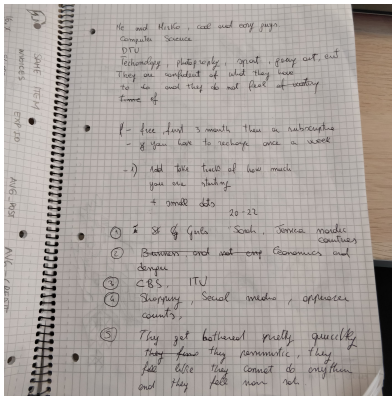 He and Mirko, cool and easy guys
Computer Science
DTU
Technology, photography, sport, going out, eat
They are confident of what they have
to do and they do not feel of wasting
time of
free first 3 month then a subscription
- if you have to recharge once a week
add take track of how much
you are
+ small dots
20-22
① Girls Sarah, Jessica nordic
countries
② Business and not eng Economics and
③ CBS, ITU
④ Shopping, Social media, appearance
counts,
⑤ They get bothered pretty quickly
they pessimistic, they
feel like they cannot do anything
and they feel
SAME ITEM